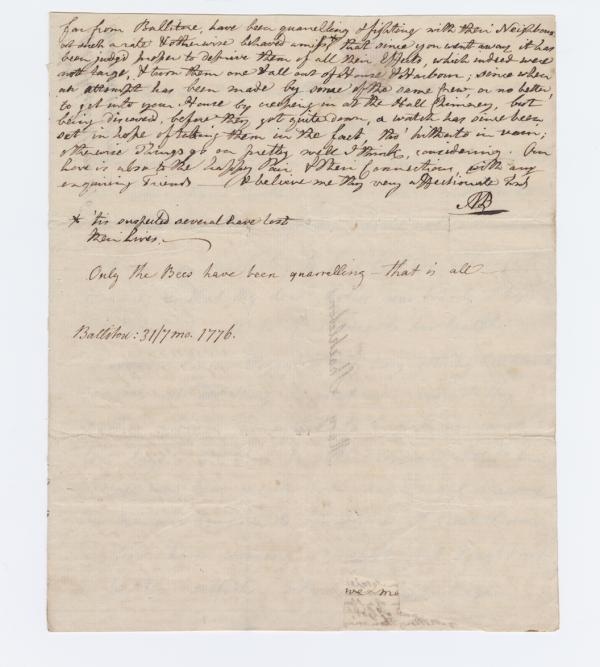 far from Ballitore, have been quarrelling & fighting with their Neighbours
at such a rate & otherwise behaved amiss* that since you went away it has
been judged proper to deprive them of all their Effects, which indeed were
not large, & turn them one & all out of House & Harbour; since when
an attempt has been made by some of the same crew, or no better,
to get into your House by creeping in at the Hall Chimney, but
being discovered, before they got quite down, a watch has since been
set in hope of taking them in the fact, tho' hitherto in vain;
otherwise Things go on pretty well I think, considering. Our
love is also to the happy Pair, & their Connections, with any
enquiring Friends — & believe me thy very affectionate Frd
AB
* 'tis suspected several have lost
their Lives.
Only the Bees have been quarrelling — that is all
Ballitore: 31/7 mo. 1776.
we me